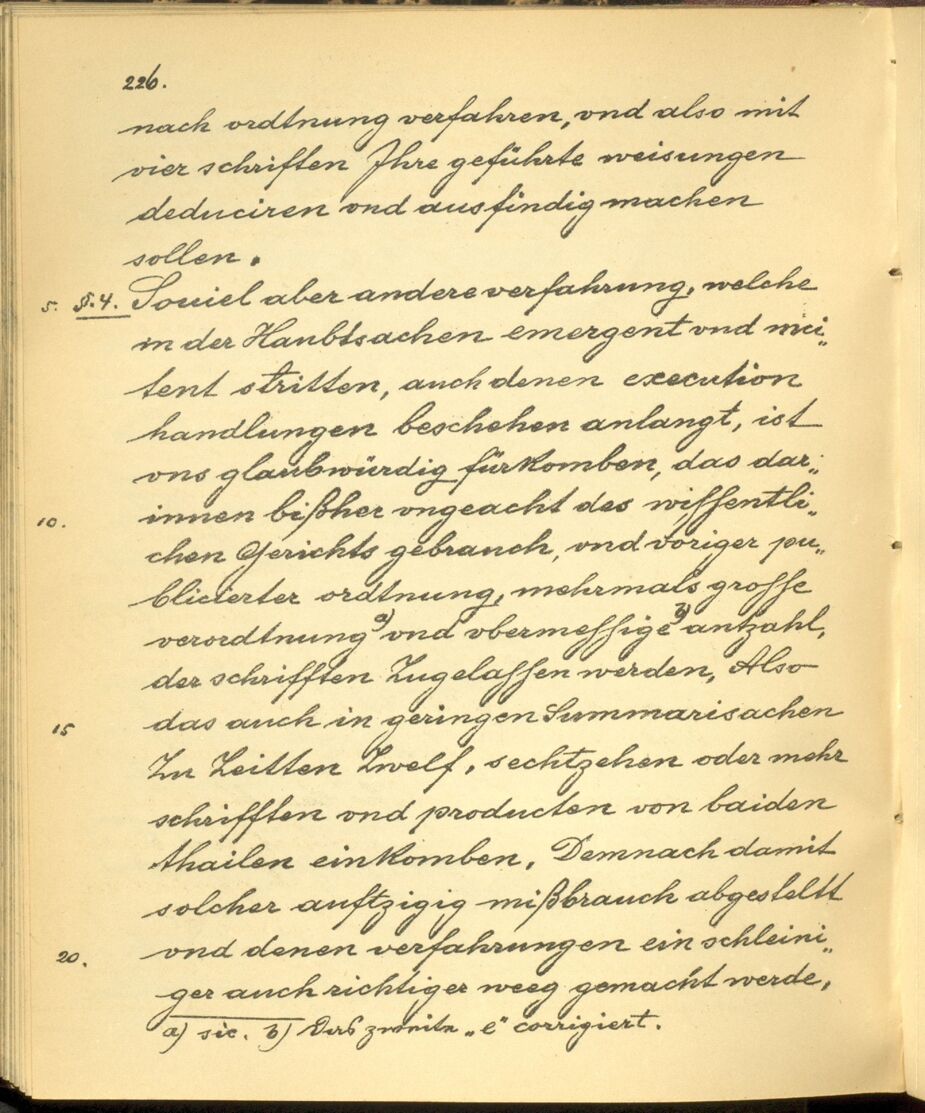 226.
nach ordtnung verfahren, vnd also mit
vier schriften Ihre geführte weisungen
deduciren vnd ausfindig machen
sollen.
5. §.4. Souiel aber andere verfahrung, welche
in der Haubtsachen emergent vnd inci„
tent stritten, auch denen execution
handlungen beschehen anlangt, ist
vns glaubwürdig fürkomben, das dar„
10. innen bißher vngeacht des wissentli„
chen Gerichts gebrauch, vnd voriger pu„
blicierter ordtnung, mehrmals grosse
verordtnung a) vnd vbermessige b) antzahl,
der schrifften Zugelassen werden, Also
15 das auch in geringen Summarisachen
Zu Zeitten Zwelf, sechtzehen oder mehr
schrifften vnd producten von baiden
thailen einkomben, Demnach damit
solcher auftzigig mißbrauch abgestellt
20. vnd denen verfahrungen ein schleini„
ger auch richtiger weeg gemacht werde,
a) sic. b) Das zweite „e“ corrigiert.